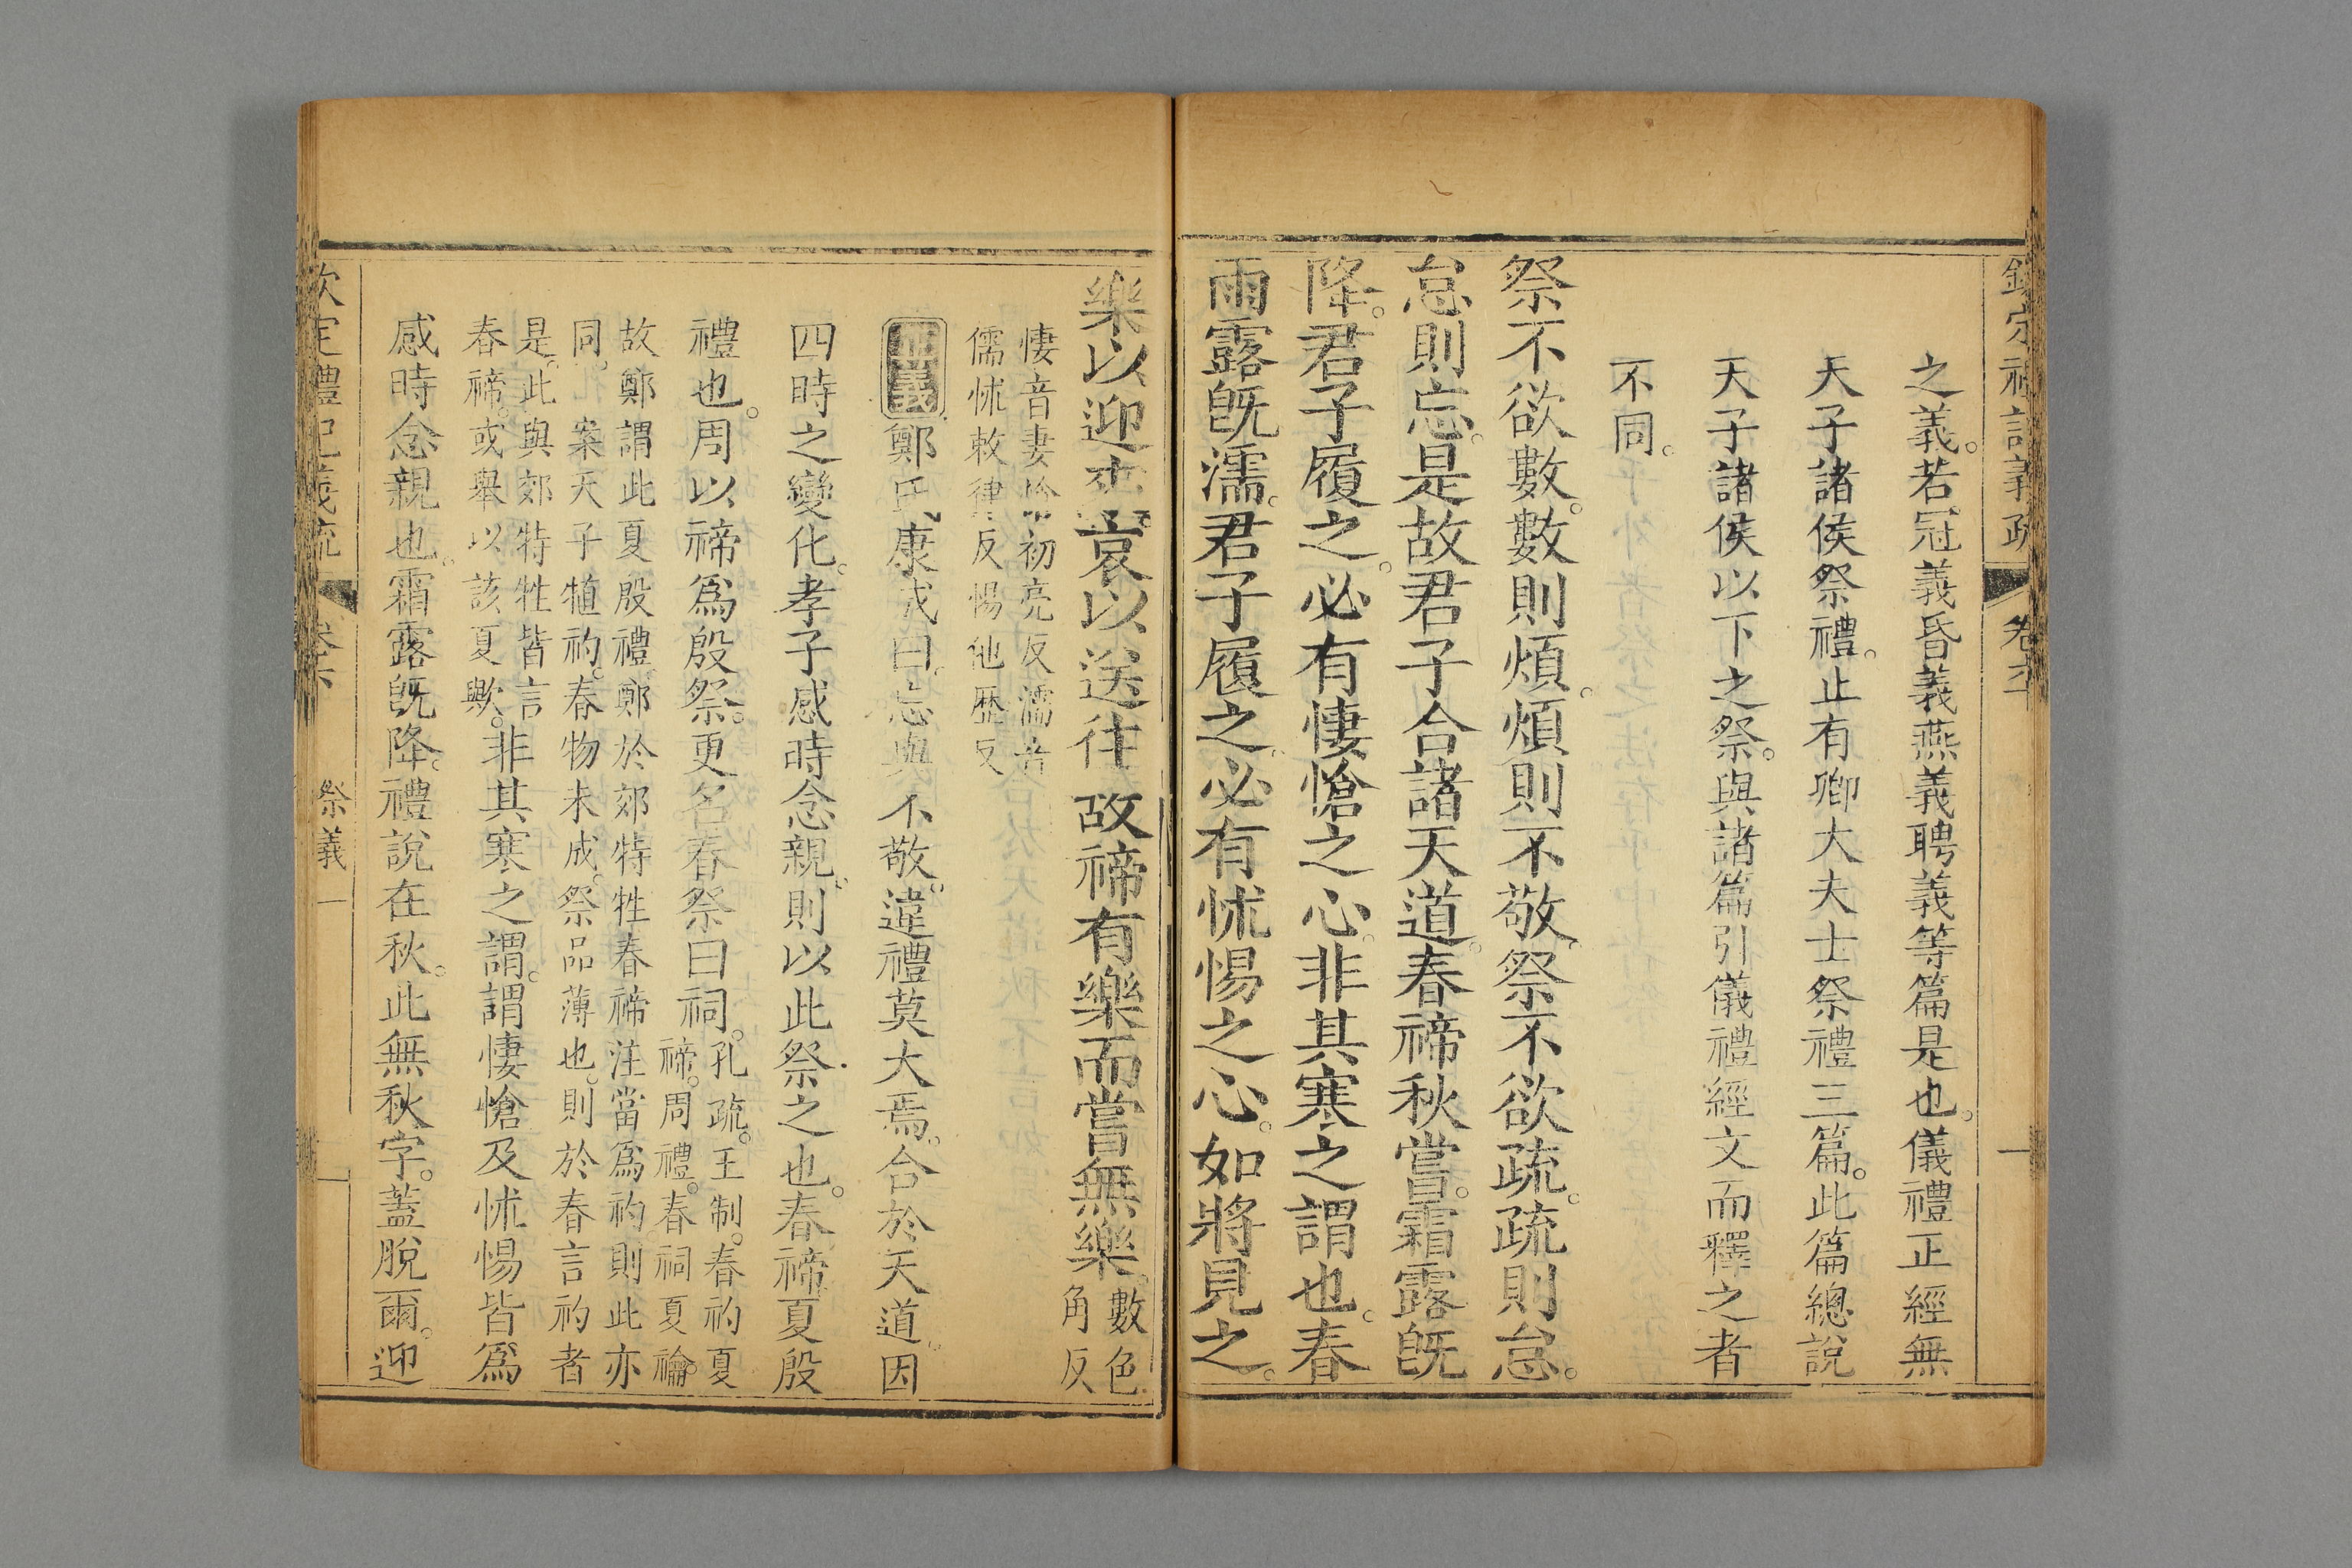 之義。若冠義昏義燕義聘義等篇是也。儀禮正經無
天子諸侯祭禮。止有卿大夫士祭禮三篇。此篇總說
天子諸侯以下之祭。與諸篇引儀禮經文而釋之者
不同。
祭不欲數。數則煩。煩則不敬。祭不欲疏。疏則怠。
怠則忘。是故君子合諸天道。春禘秋嘗。霜露旣
降。君子履之。必有悽愴之心。非其寒之謂也。春
雨露旣濡。君子履之。必有怵惕之心。如將見之。
樂以迎來。哀以送往。故禘有樂而嘗無樂。
數色
角反
悽音妻愴初亮反濡音
儒怵敕律反惕他歷反
正義
鄭氏康成曰。忘與不敬。違禮莫大焉。合於天道。因
四時之變化。孝子感時念親。則以此祭之也。春禘夏殷
禮也。周以禘爲殷祭。更名春祭曰祠。
孔疏。王制。春礿夏
禘。周禮。春祠夏禴。
故鄭謂此夏殷禮。鄭於郊特牲春禘注當爲礿則此亦
同。案天子犆礿。春物未成。祭品薄也。則於春言礿者
是。此與郊特牲皆言
春禘。或舉以該夏歟。
非其寒之謂。謂悽愴及怵惕皆爲
感時念親也。霜露旣降。禮說在秋。此無秋字。蓋脫爾。迎
欽定禮記義疏
卷六
祭義
一